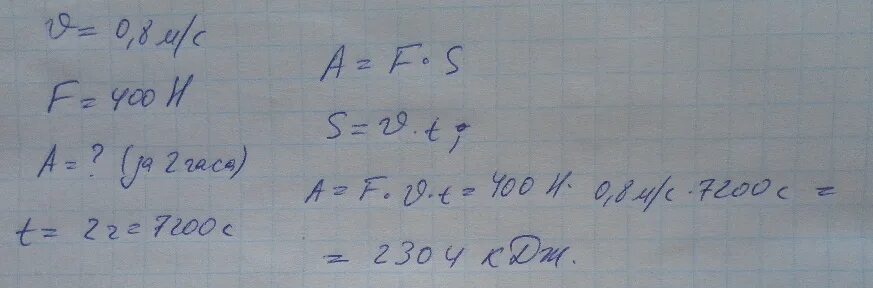 υ = 0,8 м/с
F = 400 Н
A = ? (за 2 часа)
t = 2 ч = 7200 с
A = F · S
S = υ · t ;
A = F · υ · t = 400 Н · 0,8 м/с · 7200 с =
= 2304 кДж.